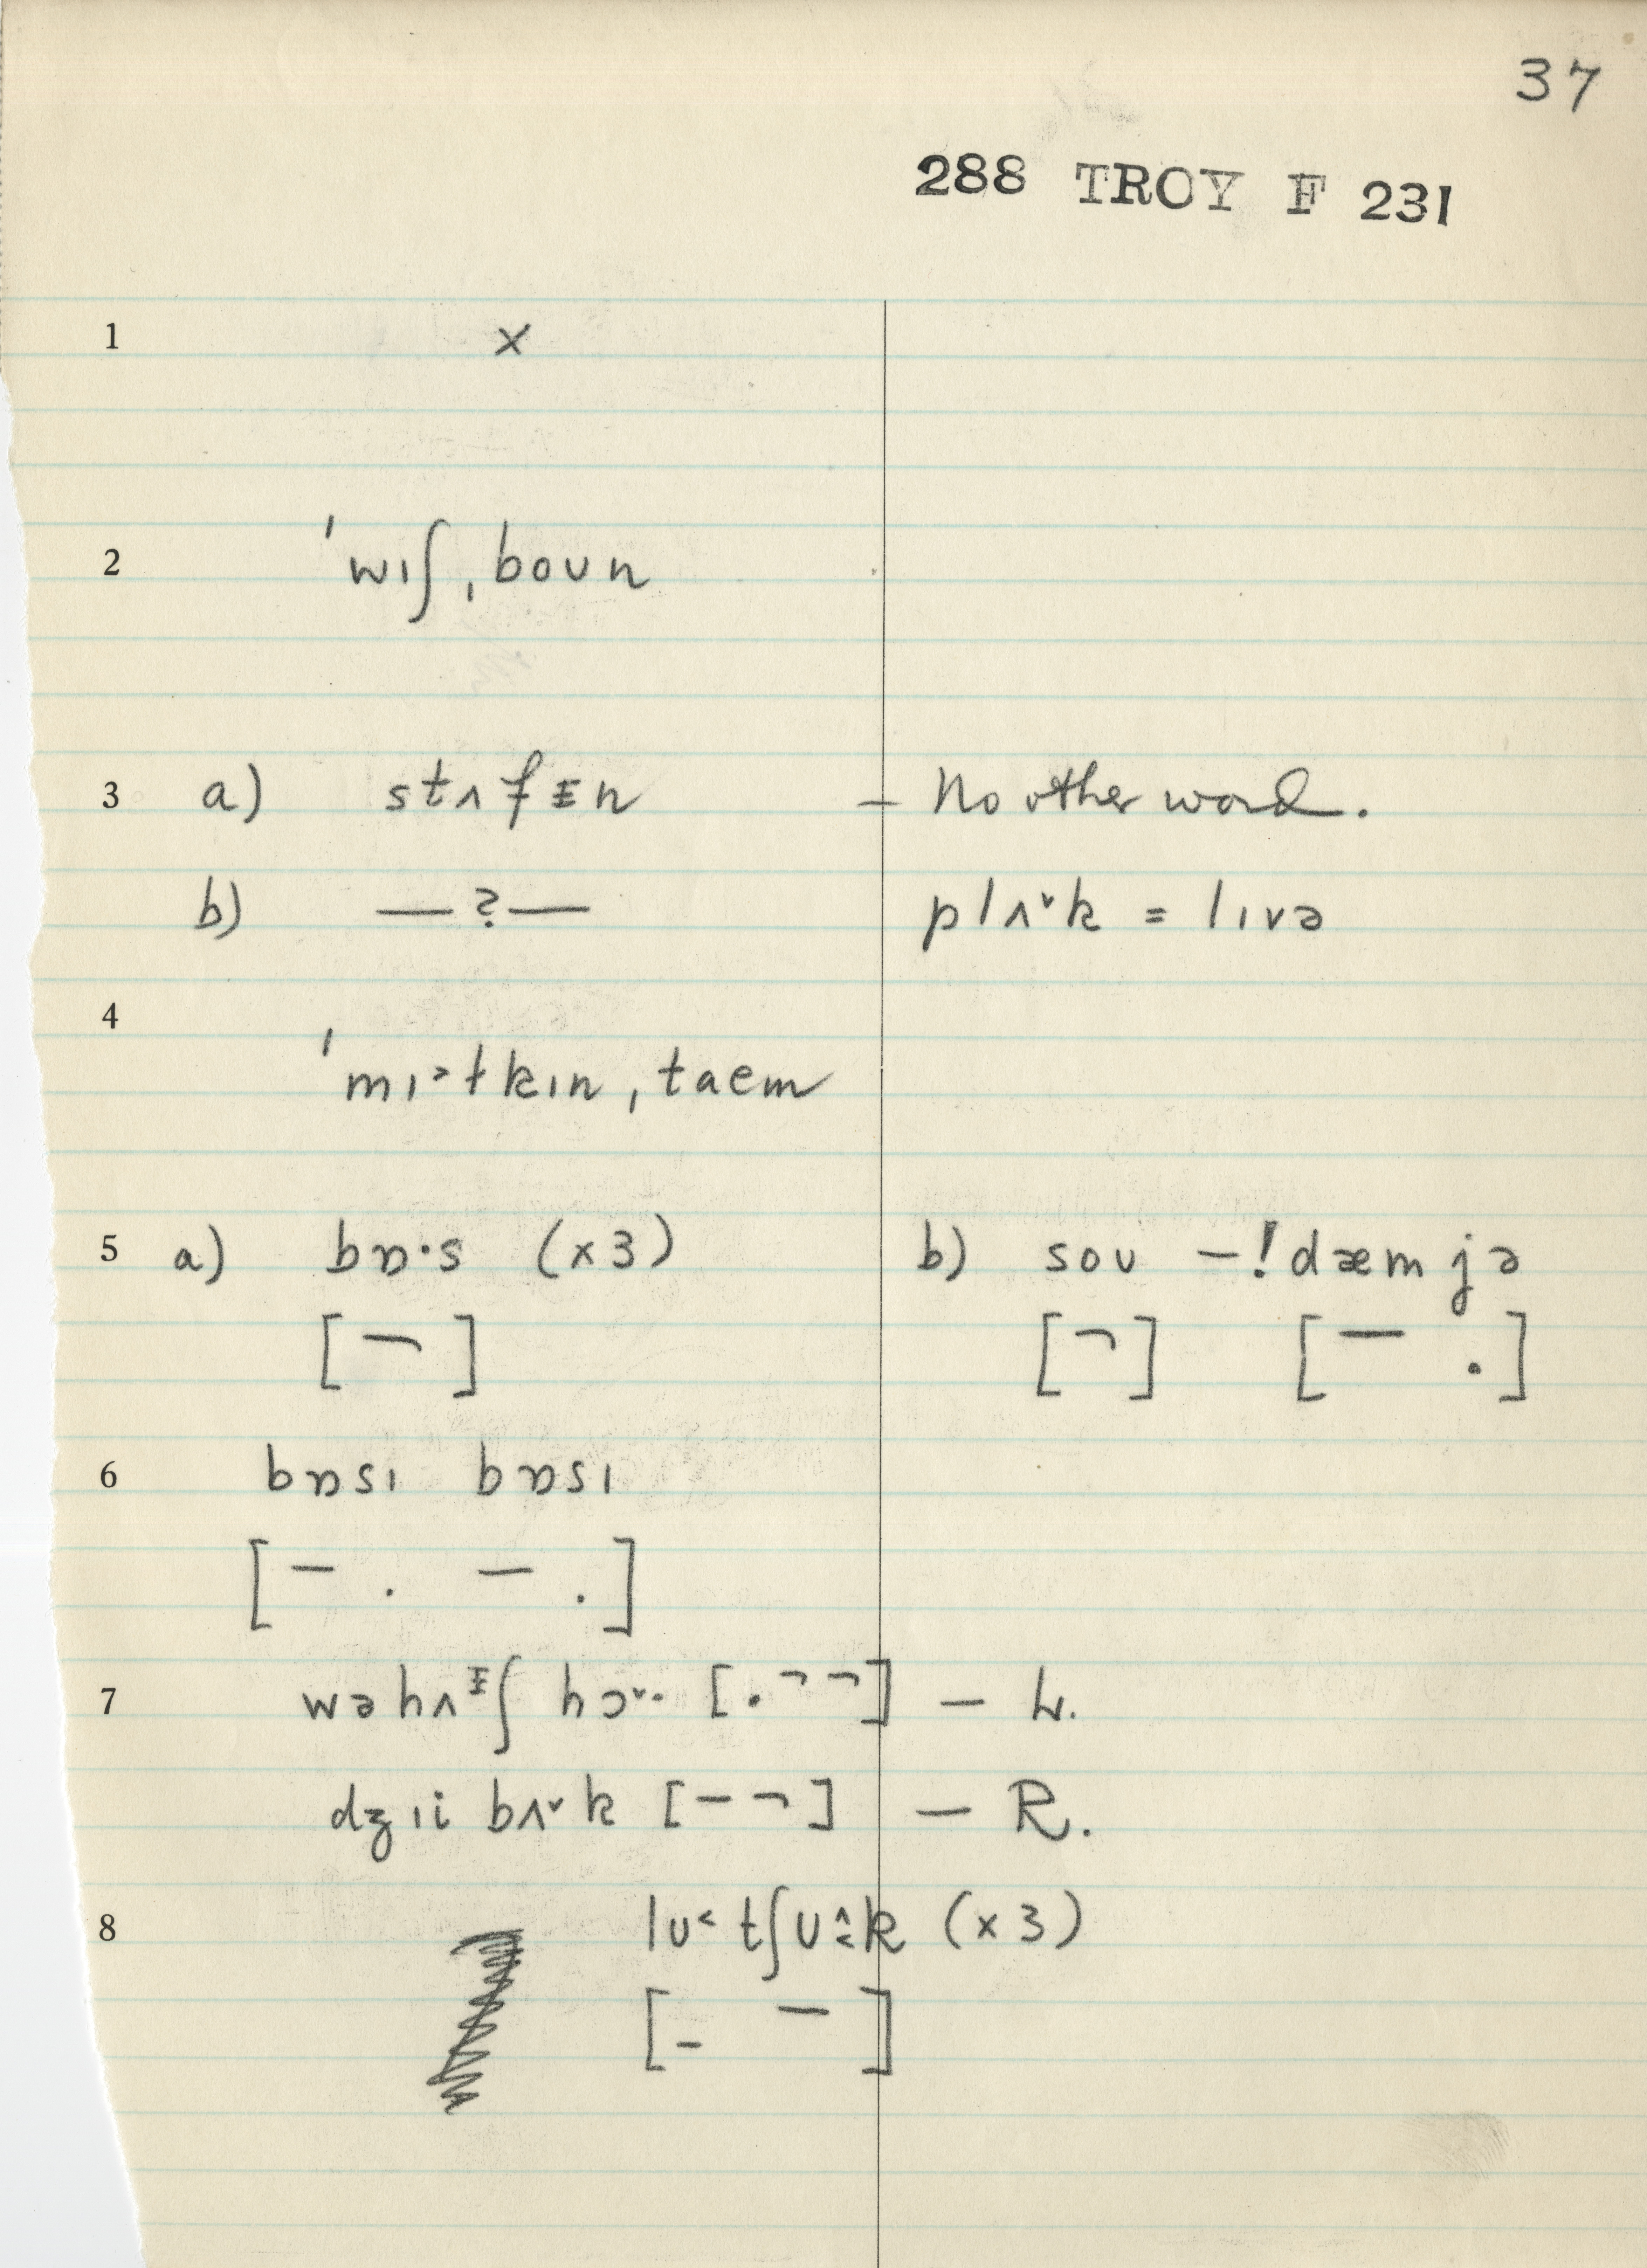 37
288 TROY F 231
1 x
2 ˈwɪʃˌboʊn
3 a) stʌfɪn — No other word.
b) — ? — plʌ˅k = lɪvə
4 ˈmɪ˃ɫkɪnˌtaem
5 a) bɒ·s (x3) b) soʊ –! dæm jə
[¬] [¬] [— .]
6 bɒsɪ bɒsɪ
[– . – .]
7 wə hʌɪʃ hɔ˅· [. ¬ ¬] — h.
dʒɪi bʌ˅k [– ¬] — R.
8 lʊ˂ tʃʊk (x3)
[– –]